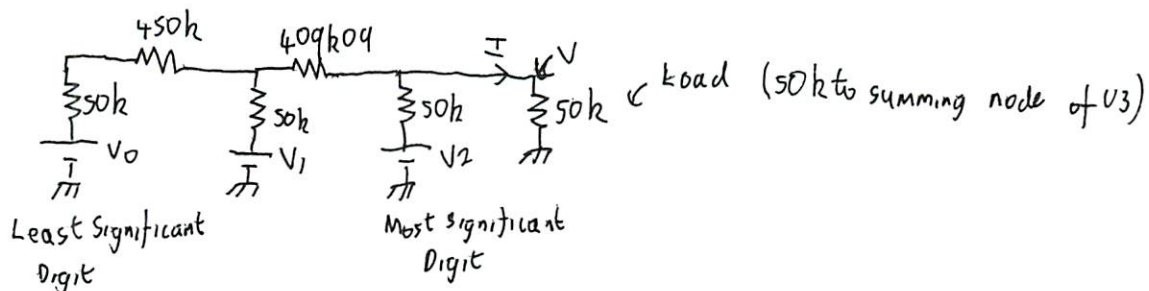 450k
409k09
I
V
50k
50k
50k
50k
Load (50k to summing node of V3)
V0
V1
V2
Least Significant
Digit
Most Significant
Digit